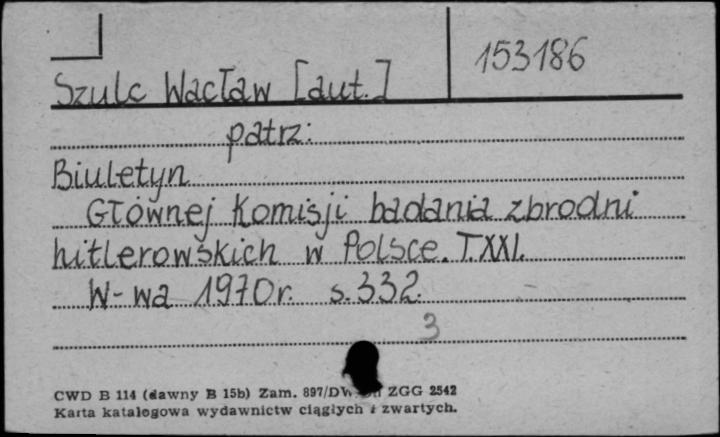 153186
Szulc Wacław [aut.]
patrz:
Biuletyn
Głównej Komisji badania zbrodni
hitlerowskich w Polsce. T.XXI.
W-wa 1970r. s.332.
3
CWD B 114 (dawny B 15b) Zam. 897/DW ZGG 2542
Karta katalogowa wydawnictw ciągłych i zwartych.